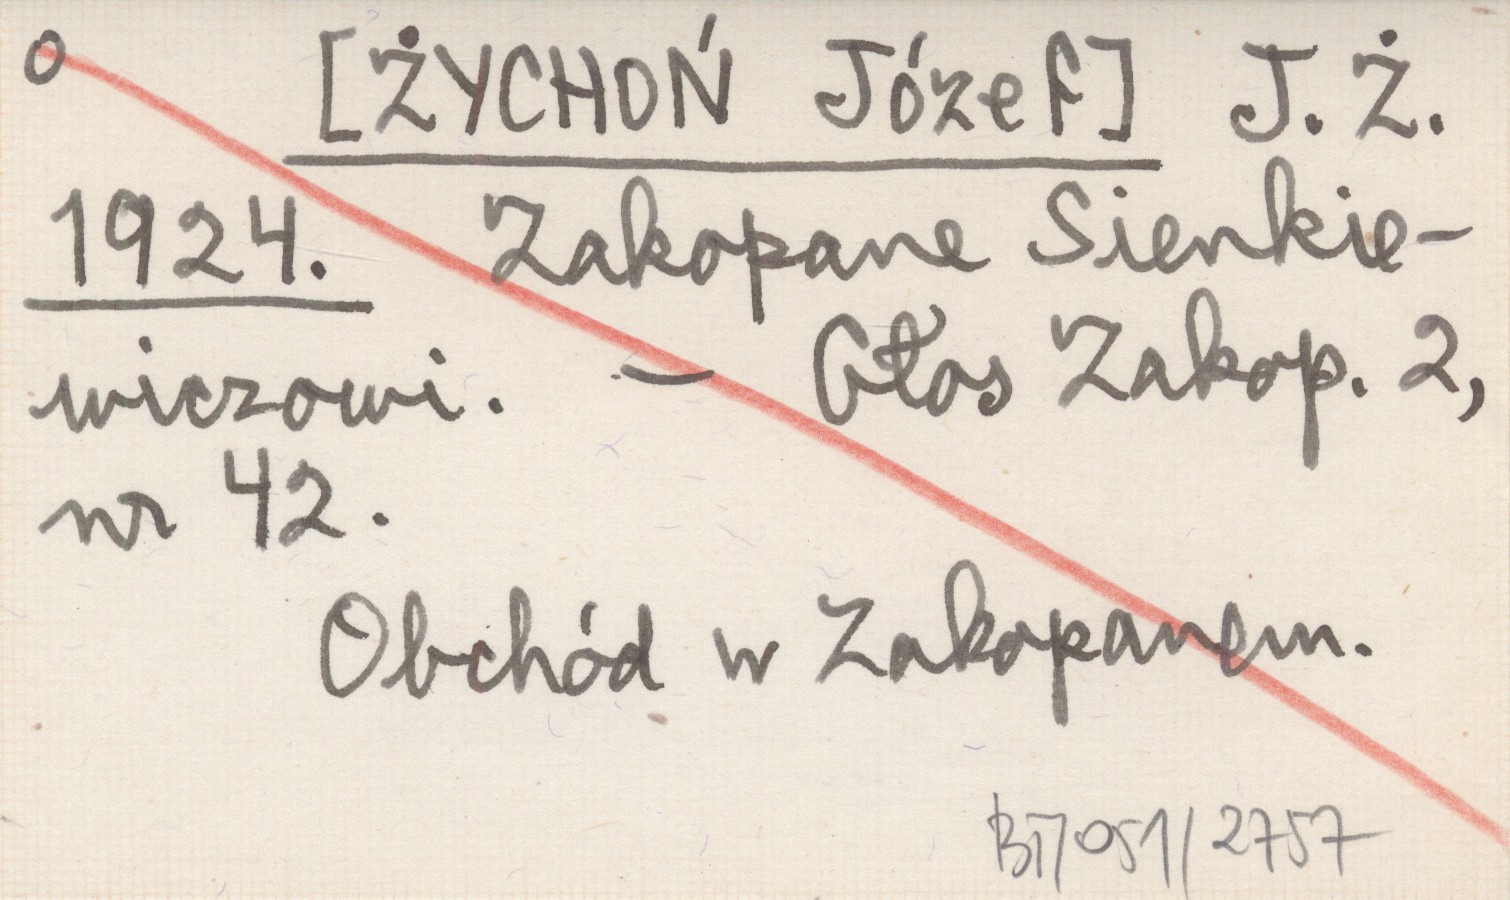 o [ŻYCHOŃ Józef] J. Ż.
1924. Zakopane Sienkie-
wiczowi. – Głos Zakop. 2,
nr 42.
Obchód w Zakopanem.
BT/051/2757